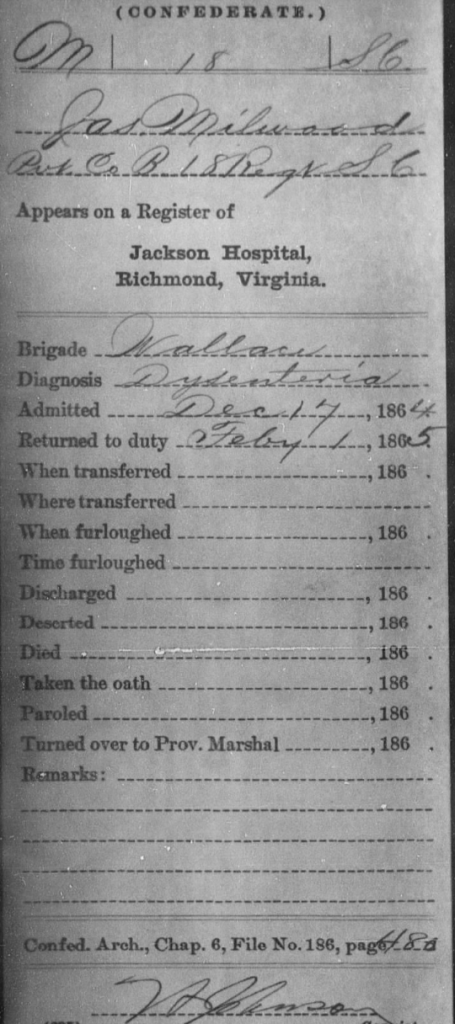 (CONFEDERATE.)
M | 18 | S C
Jas. Milwood
Pvt. Co B. 18 Regt S C
Appears on a Register of
Jackson Hospital,
Richmond, Virginia.
Brigade Wallace
Diagnosis Dysenteria
Admitted Dec 17, 1864
Returned to duty Feby 1, 1865.
When transferred , 186 .
Where transferred
When furloughed , 186 .
Time furloughed
Discharged , 186 .
Deserted , 186 .
Died , 186 .
Taken the oath , 186 .
Paroled , 186 .
Turned over to Prov. Marshal , 186 .
Remarks:
Confed. Arch., Chap. 6, File No. 186, page
Johnson